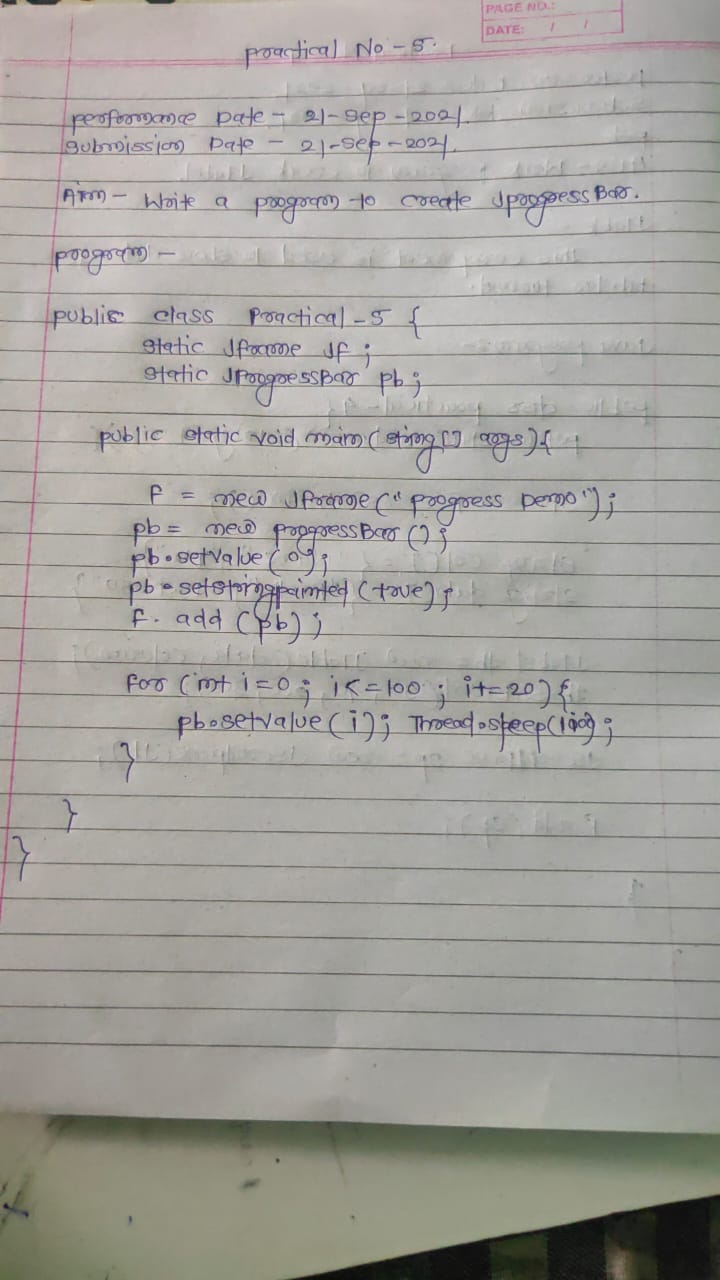 PAGE NO.:
DATE: / /
Practical No - 5.
performance Date - 21-Sep-2021.
Submission Date - 21-Sep-2021.
Aim - Write a program to create JprogressBar.
program -
public class Practical-5 {
static Jframe Jf ;
static JProgressBar pb ;
public static void main ( string [] args ) {
f = new Jframe (" progress Demo ") ;
pb = new progressBar () ;
pb.setvalue ( 0 ) ;
pb.setstringpainted (true) ;
f. add (pb) ;
for (int i=0 ; i<=100 ; i+=20) {
pb.setvalue ( i ) ; Thread.sleep( ;
}
}
}